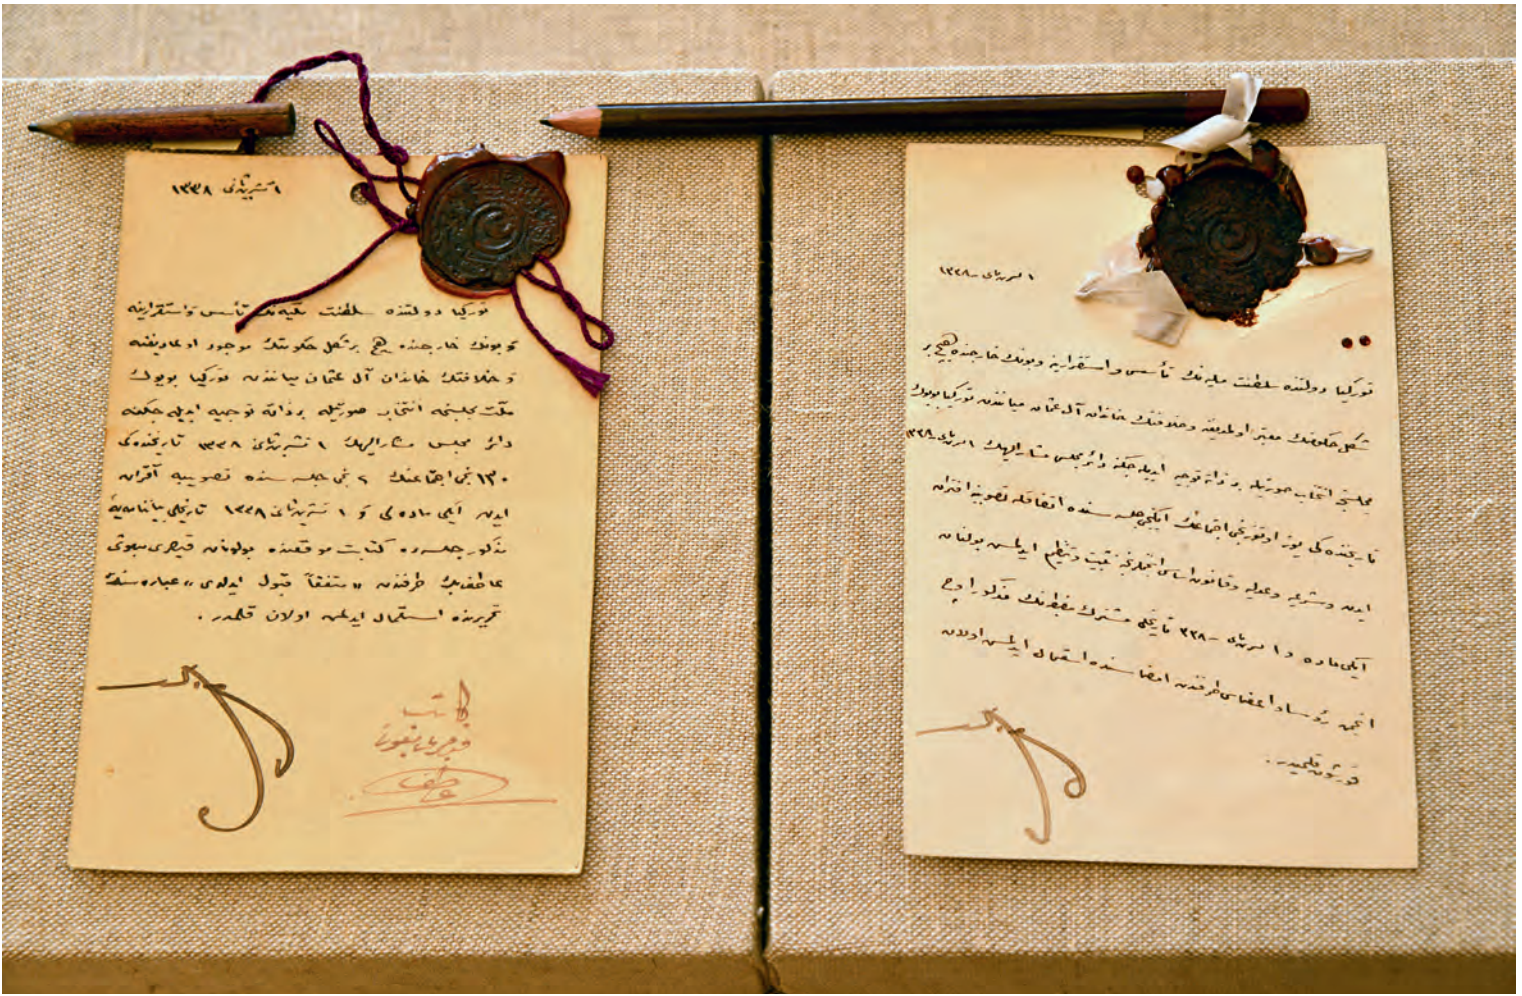 ١ تشرین ثانی ١٣٣٨
تورکیا دولتنده سلطنت ملیه‌نك تأسس و استقرارینه
و بونك خارجنده هیچ بر شکل حکومتك موجود اولمادیغنه
و خلافتك خاندان آل عثمان میاننده تورکیا بویوك
ملت مجلسنجه انتخاب صورتیله بر ذاته توجیه ایدیله‌جکنه
دائر مجلس مشارالیهك ١ تشرین ثانی ١٣٣٨ تاریخنده‌کی
١٣٠ نجی اجتماعنك ٢ نجی جلسه سنده تصویبه اقتران
ایدن ایکی ماده‌لی و ١ تشرین ثانی ١٣٣٨ تاریخلی بیاننامه‌یه
مذکور جلسه‌ده کتابت موقعنده بولونان قیصری مبعوثی
عاطف بك طرفندن «متفقاً قبول ایدلدی» عباره سنك
تحریرنده استعمال ایدلمش اولان قلمدر .
کاتب
قیصری مبعوثی
عاطف
١ تشرین ثانی ١٣٣٨
تورکیا دولتنده سلطنت ملیه نك تأسس و استقرارینه و بونك خارجنده هیچ بر
شکل حکومتك معتبر اولمدیغنه و خلافتك خاندان آل عثمان میاننده تورکیا بویوك
مجلسنجه انتخاب صورتیله بر ذاته توجیه ایدیله جکنه دائر مجلس مشارالیهك ١ تشرین ثانی ٣٣٨
تاریخنده کی یوز اوتوزنجی اجتماعنك ایکنجی جلسه سنده اتفاقله تصویبه اقتران
ایدن و شرعیه و عدلیه و قانون اساسی انجمنلرنجه تثبیت و تنظیم ایدلمش بولنان
ایکی ماده و ١ تشرین ثانی ٣٣٨ تاریخلی مشترك مضبطه نك مذکور اوچ
انجمن رؤسا و اعضاسی طرفندن امضا سنده استعمال ایدلمش اولان
قورشون قلمیدر .